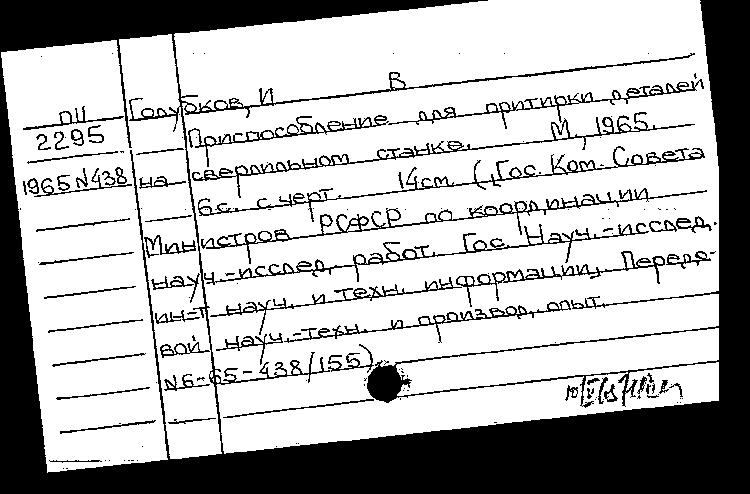 Голубков, И В
ПII
2295
Приспособление для притирки деталей
1965 N438
на сверлильном станке. М., 1965.
6с. с черт. 14см. (Гос. Ком. Совета
Министров РСФСР по координации
науч.-исслед. работ. Гос. Науч.-исслед.
ин-т науч. и техн. информации. Передо-
вой науч.-техн. и производ. опыт.
N6-65-438/155)